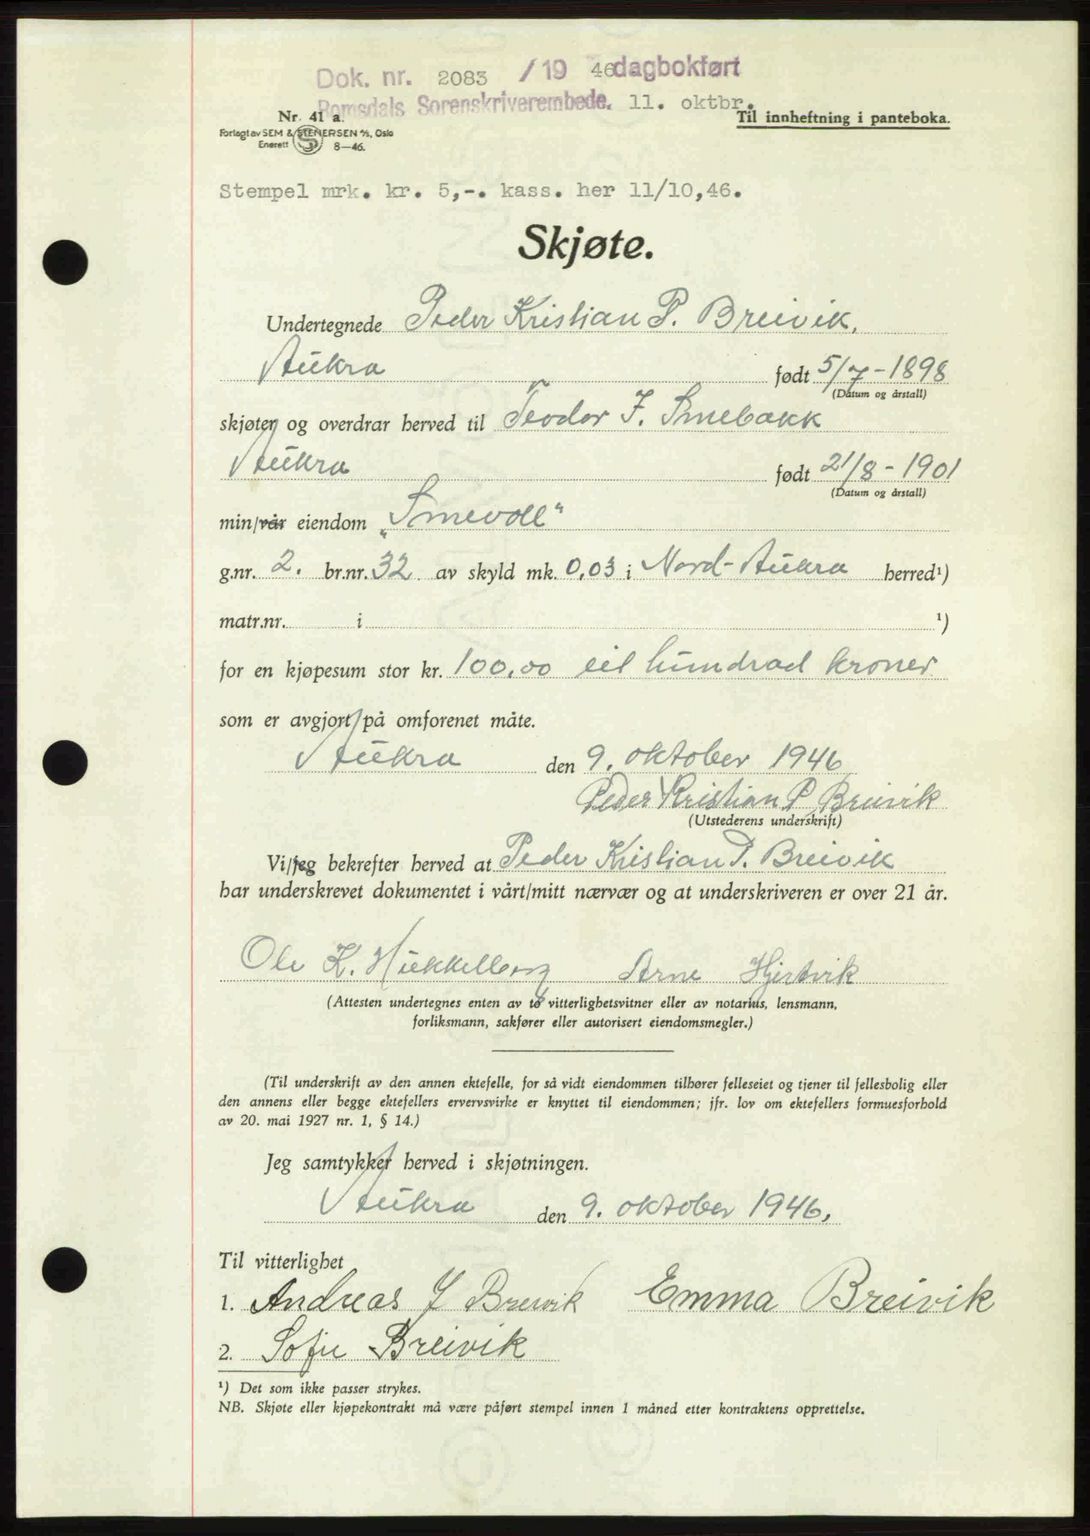 Dok. nr. 2083 / 19 46 dagbokført
Romsdals Sorenskriverembede. 11. oktbr.
Nr. 41 a. Til innheftning i panteboka.
Forlagt av SEM & STENERSEN A/S, Oslo
Enerett S 8—46.
Stempel mrk. kr. 5,-. kass. her 11/10,46.
Skjøte.
Undertegnede Peder Kristian P. Breivik,
Aukra født 5/7-1898
(Datum og årstall)
skjøter og overdrar herved til Teodor F. Smebakk
Aukra født 21/8-1901
(Datum og årstall)
min/vår eiendom „Smevoll"
g.nr. 2. br.nr. 32 av skyld mk. 0,03 i Nord-Aukra herred¹)
matr.nr. i ¹)
for en kjøpesum stor kr. 100,00 eit hundrad kroner
som er avgjort på omforenet måte.
Aukra den 9. oktober 1946
Peder Kristian P Breivik
(Utstederens underskrift)
Vi/jeg bekrefter herved at Peder Kristian P. Breivik
har underskrevet dokumentet i vårt/mitt nærvær og at underskriveren er over 21 år.
Ole K. Hukkelberg Arne Hjertvik
(Attesten undertegnes enten av to vitterlighetsvitner eller av notarius, lensmann,
forliksmann, sakfører eller autorisert eiendomsmegler.)
(Til underskrift av den annen ektefelle, for så vidt eiendommen tilhører felleseiet og tjener til fellesbolig eller
den annens eller begge ektefellers ervervsvirke er knyttet til eiendommen; jfr. lov om ektefellers formuesforhold
av 20. mai 1927 nr. 1, § 14.)
Jeg samtykker herved i skjøtningen.
Aukra den 9. oktober 1946.
Til vitterlighet
1. Andreas J Breivik Emma Breivik
2. Sofie Breivik
¹) Det som ikke passer strykes.
NB. Skjøte eller kjøpekontrakt må være påført stempel innen 1 måned etter kontraktens opprettelse.